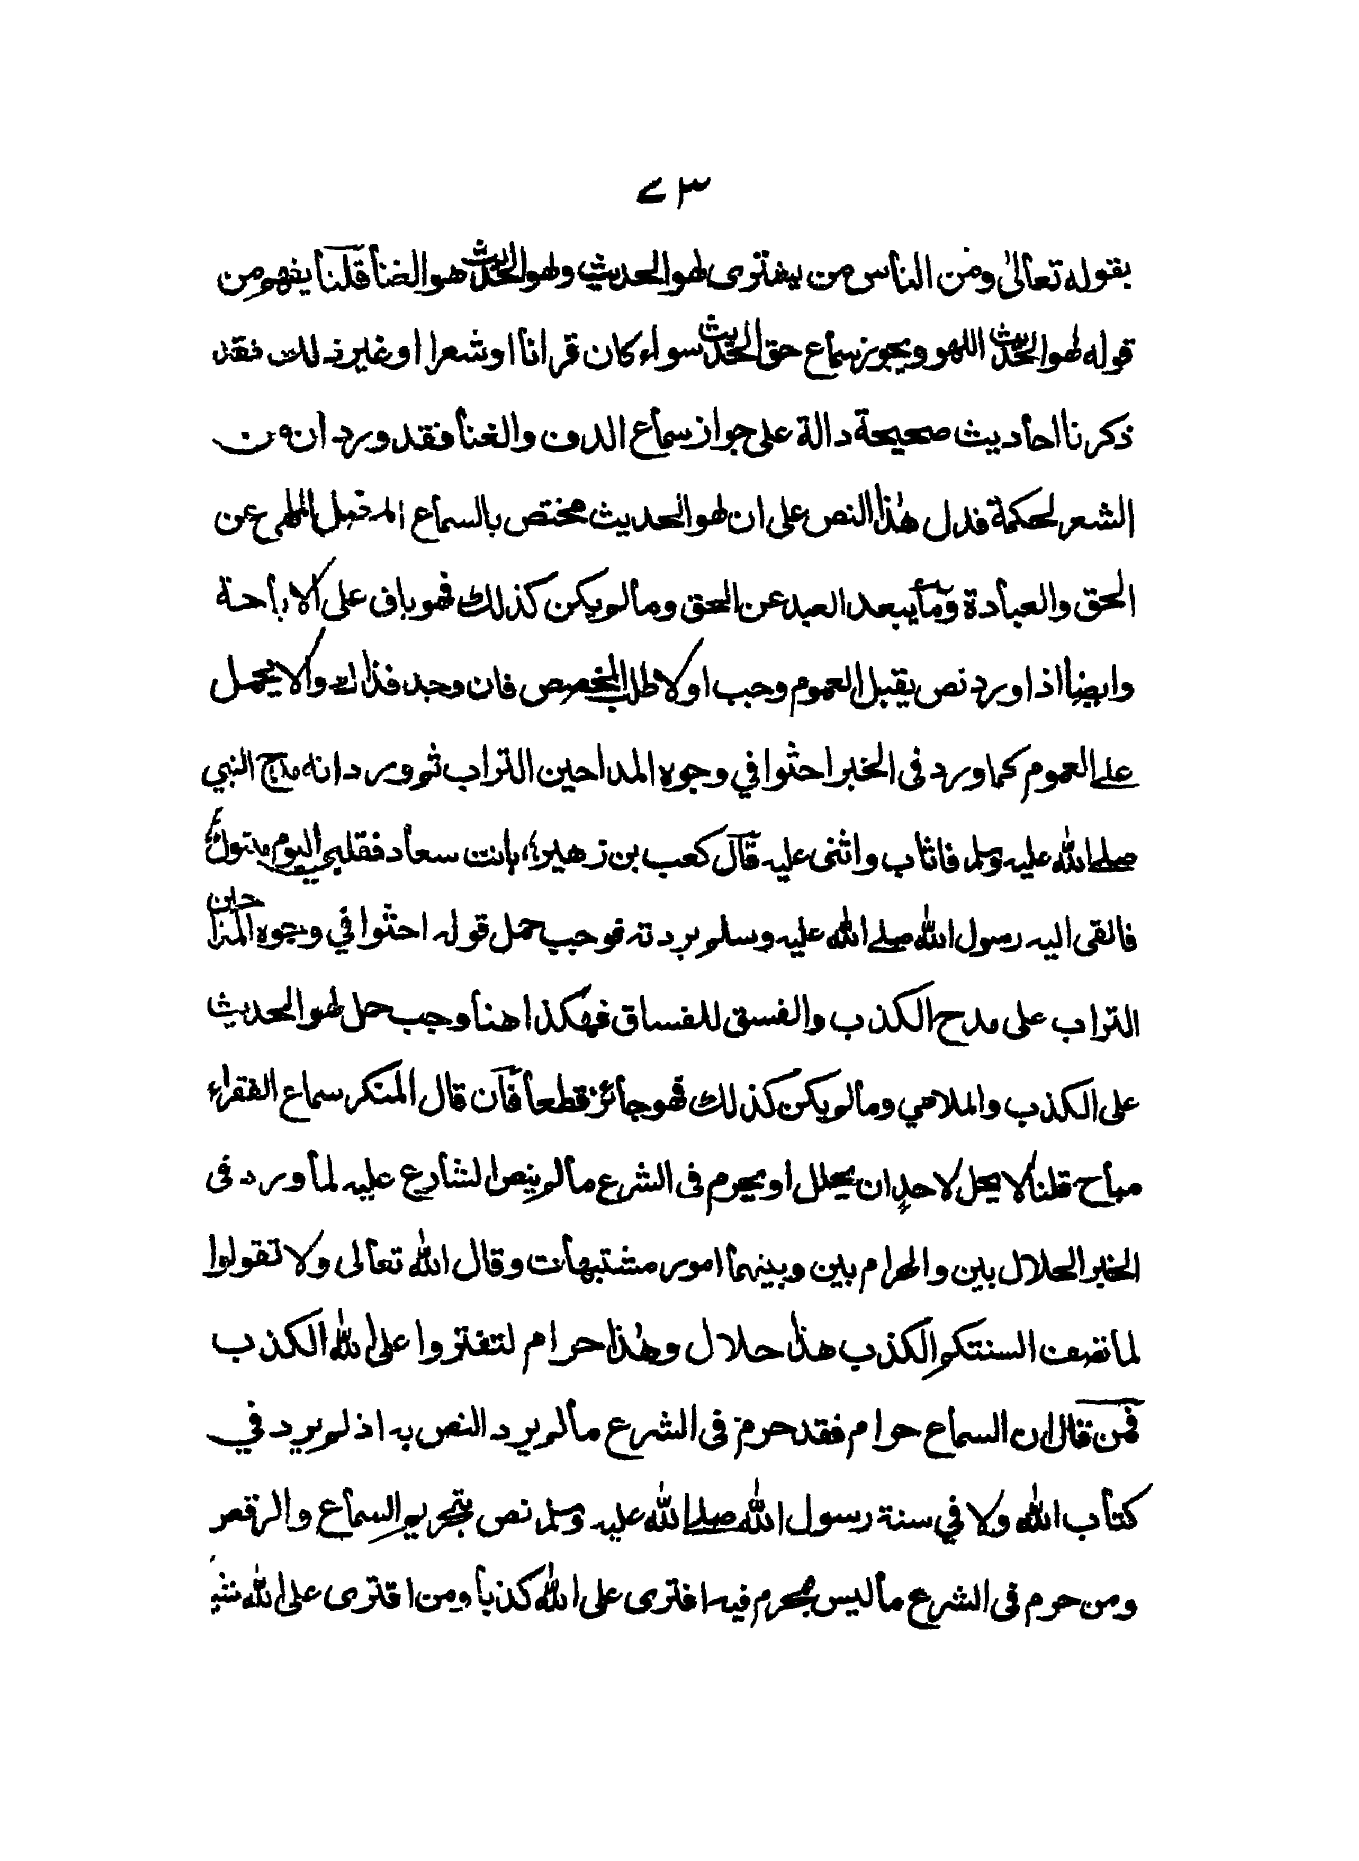 ٣ے
بقوله تعالىٰ ومن الناس من يشترى لهو الحديث ولهو الحديث هو الغنأ قلنا يفهم من
قوله لهو الحديث اللهو ويجوز سماع حق الحديث سواء كان قرانأ او شعرا او غير ذلك فقد
ذكرنا احأديث صحيحة دالة على جواز سمأع الدف والغنأ فقد ورد ان من
الشعر لحكمة فدل هٰذا النص على ان لهو الحديث مختص بالسمأع المطرح عن
الحق والعبأدة ومأيبعد العبد عن الحق ومألم يكن كذلك فهو باق على الابأحة
وايضا اذا ورد نص يقبل العموم وجب اولا طلب المخصص فان وجد فذاك والا يحمل
على العموم كما ورد فى الخبر احثوا في وجوه المداحين التراب ثم ورد انه مدح النبي
صلے الله عليه وسلم فاثاب واثنى عليه قال كعب بن زهير؛ بانت سعأد فقلبي اليوم متبول؛
فالقى اليه رسول الله صلے الله عليه وسلم بردته فوجب حمل قوله احثوا في وجوه المداحين
التراب على مدح الكذب والفسق للفساق فهكذا هنأ وجب حمل لهو الحديث
على الكذب والملاهي ومألم يكن كذلك فهو جأئز قطعأ فأن قال المنكر سماع الفقراء
مبأح قلنا لا يحل لاحد ان يحلل او يحرم فى الشرع مألم ينص الشأرع عليه لمأ ورد فى
الخبر الحلال بين والحرام بين وبينهمأ امور مشتبهأت وقال الله تعألى ولا تقولوا
لما تصف السنتكم الكذب هٰذا حلال وهٰذا حرام لتفتروا على الله الكذب
فمن قال ان السمأع حرام فقد حرم فى الشرع مألم يرد النص به اذ لم يرد في
كتأب الله ولا في سنة رسول الله صلے الله عليه وسلم نص بتحريم السمأع والرقص
ومن حرم فى الشرع مأليس بمحرم فيه افترى على الله كذبأ ومن افترى على الله شيئا